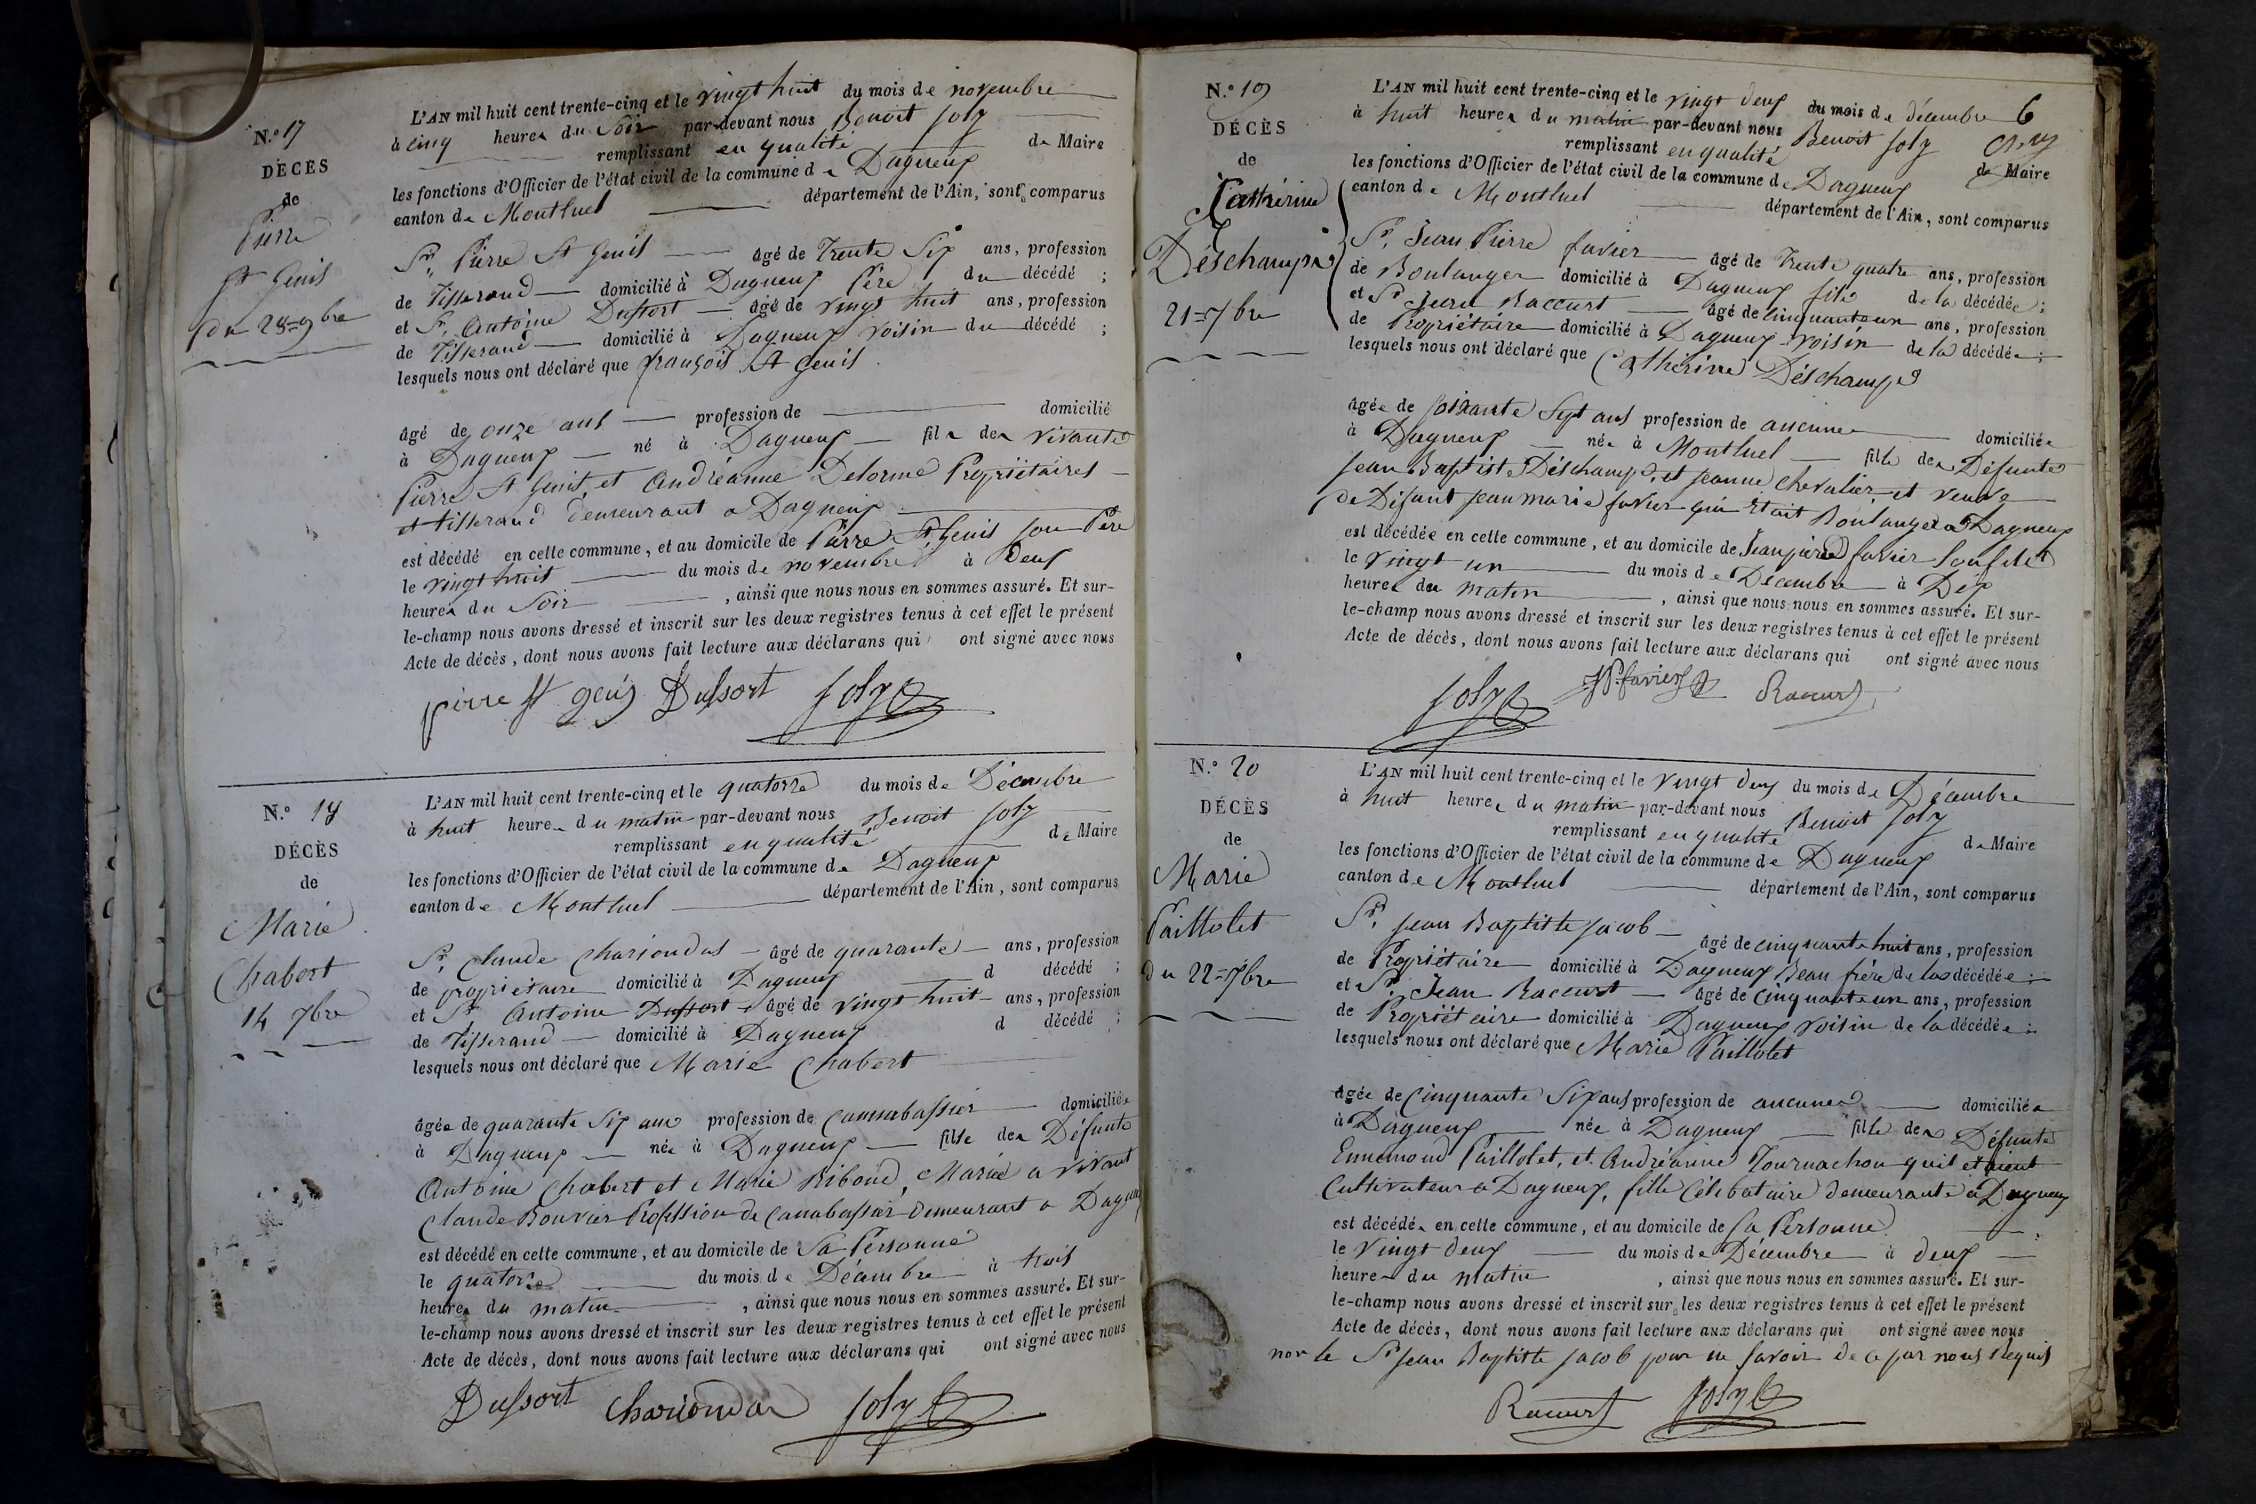 N.º 17
DÉCÈS
de
Pierre
St Genis
du 28 = 9bre
L'AN mil huit cent trente-cinq et le vingt huit du mois de novembre
à cinq heures du Soir par-devant nous Benoit Joly
remplissant en qualité de Maire
les fonctions d'Officier de l'état civil de la commune de Dagneux
canton de Montluel département de l'Ain, sont comparus
Sr. Pierre St Genis âgé de Trente Six ans, profession
de Tisserand domicilié à Dagneux Père du décédé ;
et Sr. Antoine Dussort âgé de vingt huit ans, profession
de Tisserand domicilié à Dagneux voisin du décédé ;
lesquels nous ont déclaré que françois St Genis
âgé de onze ans profession de domicilié
à Dagneux né à Dagneux fils des vivants
Pierre St Genis, et Andréanne Delorme Propriétaires
et tisserand demeurant a Dagneux
est décédé en cette commune, et au domicile de Pierre St. Genis son Père
le vingt huit du mois de novembre à Deux
heures du Soir , ainsi que nous nous en sommes assuré. Et sur-
le-champ nous avons dressé et inscrit sur les deux registres tenus à cet effet le présent
Acte de décès, dont nous avons fait lecture aux déclarans qui ont signé avec nous
pierre st genis Dussort Joly
N.º 18
DÉCÈS
de
Marie
Chabert
14 Xbre
L'AN mil huit cent trente-cinq et le quatorze du mois de Décembre
à huit heures du matin par-devant nous Benoit Joly
remplissant en qualité de Maire
les fonctions d'Officier de l'état civil de la commune de Dagneux
canton de Montluel département de l'Ain, sont comparus
Sr. Claude Chariondas âgé de quarante ans, profession
de propriétaire domicilié à Dagneux d décédé ;
et Sr. Antoine Dussort âgé de vingt huit ans, profession
de Tisserand domicilié à Dagneux d décédé ;
lesquels nous ont déclaré que Marie Chabert
âgée de quarante Six ans profession de Cannabassier domiciliée
à Dagneux née à Dagneux fille des Défunts
Antoine Chabert et Marie Riboud, Mariée a vivant
Claude Bouvier Profession de Canabassier Demeurant a Dagneux
est décédé en cette commune, et au domicile de Sa Personne
le quatorze du mois de Décembre à trois
heures du matin , ainsi que nous nous en sommes assuré. Et sur-
le-champ nous avons dressé et inscrit sur les deux registres tenus à cet effet le présent
Acte de décès, dont nous avons fait lecture aux déclarans qui ont signé avec nous
Dussort Chariondas Joly
N.º 19
DÉCÈS
de
Catherine
Déschamps
21 = Xbre
L'AN mil huit cent trente-cinq et le vingt deux du mois de décembre 6
à huit heures du matin par-devant nous Benoit Joly
remplissant en qualité de Maire
les fonctions d'Officier de l'état civil de la commune de Dagneux
canton de Montluel département de l'Ain, sont comparus
Sr. Jean Pierre favier âgé de trente quatre ans, profession
de Boulanger domicilié à Dagneux fils de la décédée ;
et Sr Jean Raccurt âgé de Cinquante un ans, profession
de Propriétaire domicilié à Dagneux voisin de la décédée ;
lesquels nous ont déclaré que Catherine Déschamps
âgée de soixante Sept ans profession de aucune domiciliée
à Dagneux née à Montluel fille des Défunts
Jean Baptiste Déschamps, et Jeanne Chevalier et veuve
de Défunt Jean marie favier qui était Boulanger a Dagneux
est décédée en cette commune, et au domicile de Jean pierre favier Son fils
le vingt un du mois de Décembre à Dix
heures du matin , ainsi que nous nous en sommes assuré. Et sur-
le-champ nous avons dressé et inscrit sur les deux registres tenus à cet effet le présent
Acte de décès, dont nous avons fait lecture aux déclarans qui ont signé avec nous
Joly JP. favier Raccurt
N.º 20
DÉCÈS
de
Marie
Paillolet
du 22 = Xbre
L'AN mil huit cent trente-cinq et le vingt deux du mois de Décembre
à huit heures du matin par-devant nous Benoit Joly
remplissant en qualité de Maire
les fonctions d'Officier de l'état civil de la commune de Dagneux
canton de Montluel département de l'Ain, sont comparus
Sr. Jean Baptiste Jacob âgé de cinquante huit ans, profession
de Propriétaire domicilié à Dagneux Beau frère de la décédée ;
et Sr. Jean Raccurt âgé de Cinquante un ans, profession
de Propriétaire domicilié à Dagneux voisin de la décédée ;
lesquels nous ont déclaré que Marie Paillolet
âgée de Cinquante Six ans profession de aucune domiciliée
à Dagneux née à Dagneux fille des Défunts
Ennemond Paillolet, et Andréanne Tournachon quil etaient
Cultivateur a Dagneux, fille Célibataire demeurante a Dagneux
est décédée en cette commune, et au domicile de Sa Personne
le Vingt deux du mois de Décembre à deux
heures du matin , ainsi que nous nous en sommes assuré. Et sur-
le-champ nous avons dressé et inscrit sur les deux registres tenus à cet effet le présent
Acte de décès, dont nous avons fait lecture aux déclarans qui ont signé avec nous
non le Sr Jean Baptiste Jacob pour ne savoir de ce par nous Requis
Raccurt Joly